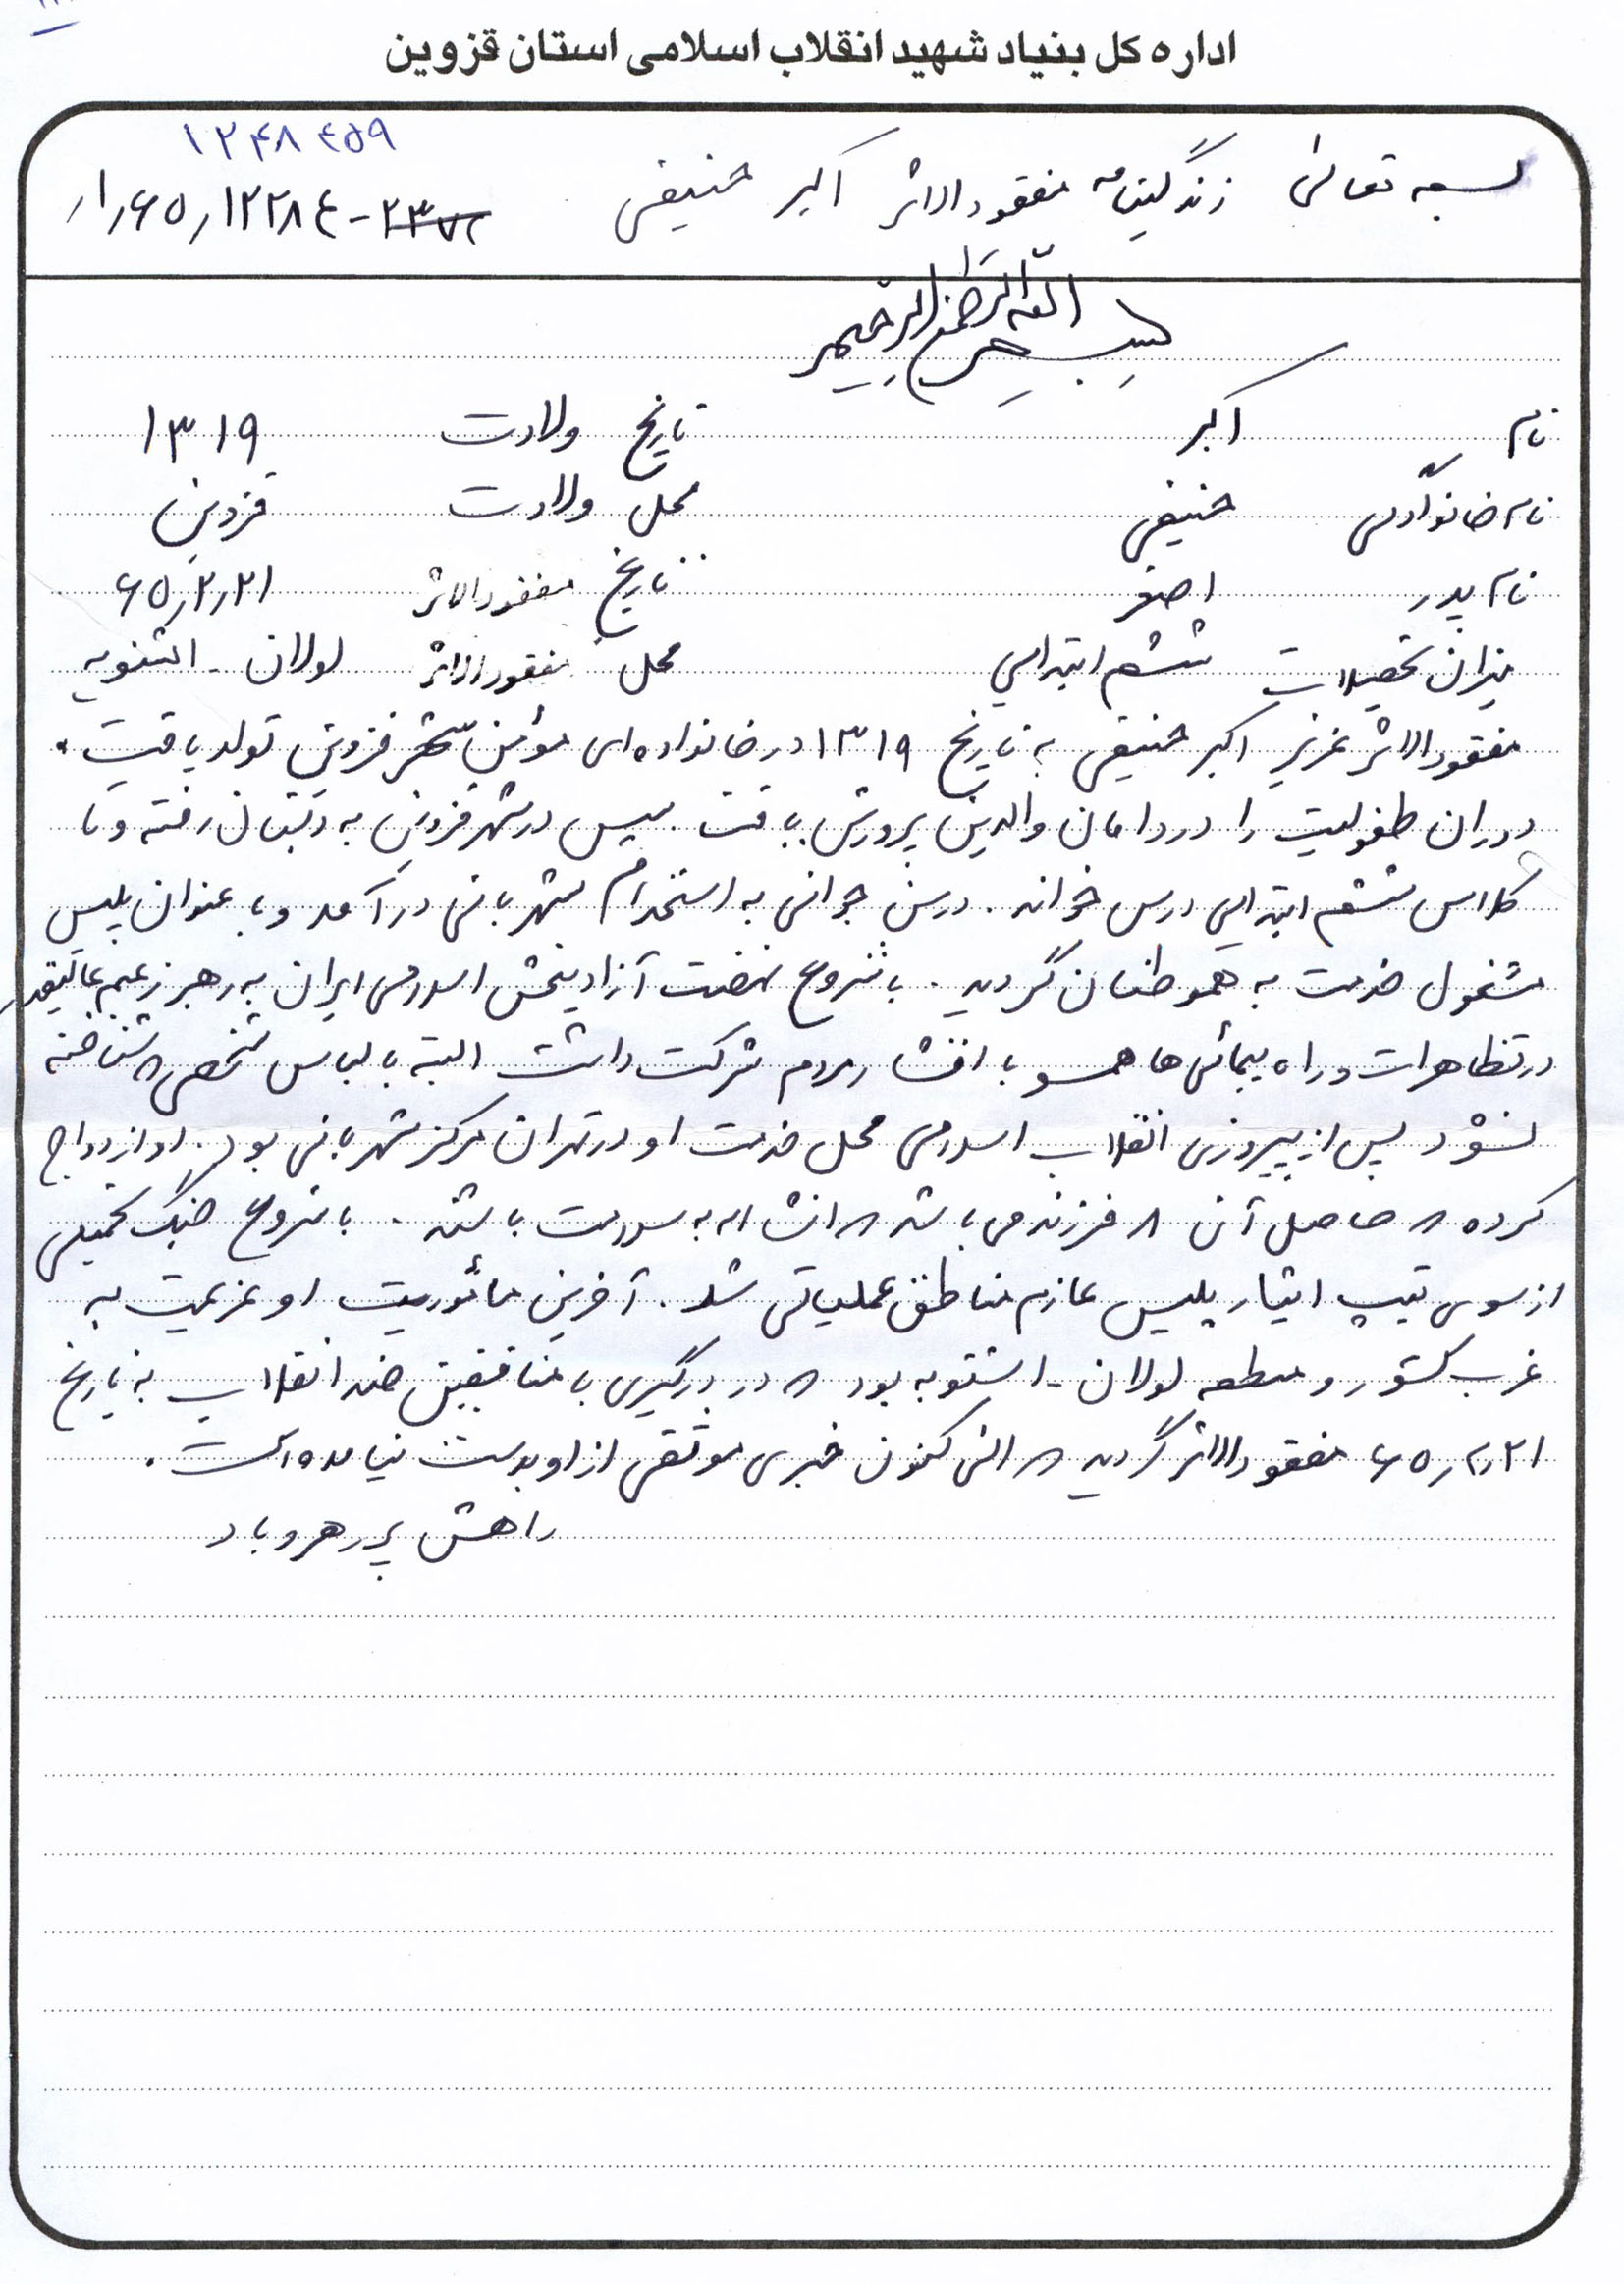 اداره کل بنیاد شهید انقلاب اسلامی استان قزوین
۱۲۴۸۴۵۹
بسمه تعالی زندگینامه مفقودالاثر اکبر حنیفی
۱٫۶۵٫۱۲۲۸۴-
بسم الله الرحمن الرحیم
نام اکبر تاریخ ولادت ۱۳۱۹
نام خانوادگی حنیفی محل ولادت قزوین
نام پدر اصغر تاریخ مفقودالاثر ۶۵٫۲٫۲۱
میزان تحصیلات ششم ابتدایی محل مفقودالاثر لولان - اشنویه
مفقودالاثر عزیز اکبر حنیفی به تاریخ ۱۳۱۹ در خانواده ای مؤمن شهر قزوین تولد یافت.
دوران طفولیت را در دامان والدین پرورش یافت. سپس در شهر قزوین به دبستان رفته و تا
کلاس ششم ابتدایی درس خواند. در سن جوانی به استخدام شهربانی درآمد و با عنوان پلیس
مشغول خدمت به هموطنان گردید. با شروع نهضت آزادیبخش اسلامی ایران به رهبر زعیم عالیقدر
در تظاهرات و راه پیمائی ها همسو با اقشار مردم شرکت داشت البته با لباس شخصی که شناخته
نشود پس از پیروزی انقلاب اسلامی محل خدمت او در تهران مرکز شهربانی بود. او ازدواج
کرده که حاصل آن ۸ فرزند می باشد که انشااله به سلامت باشند. با شروع جنگ تحمیلی
از سوی تیپ ایثار پلیس عازم مناطق عملیاتی شد. آخرین مأئوریت او عزیمت به
غرب کشور و منطقه لولان - اشنویه بود که در درگیری با منافقین ضد انقلاب به تاریخ
۶۵٫۲٫۲۱ مفقودالاثر گردید که الی کنون خبری موثقی از او بدست نیامده است.
راهش پر رهرو باد